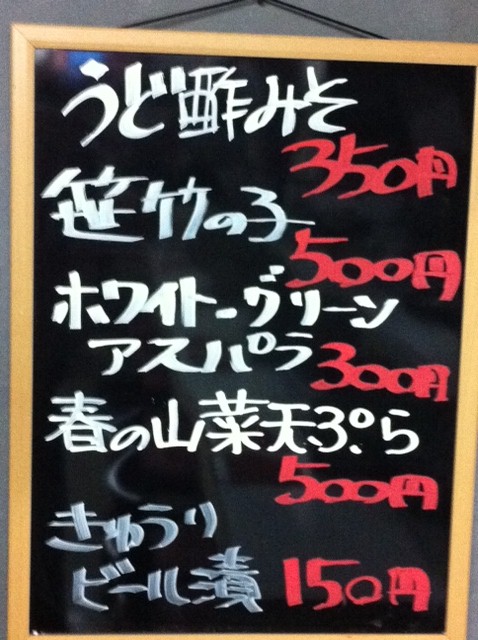 うど酢みそ
350円
笹竹の子
500円
ホワイト-グリーン
アスパラ 300円
春の山菜天ぷら
500円
きゅうり
ビール漬 150円